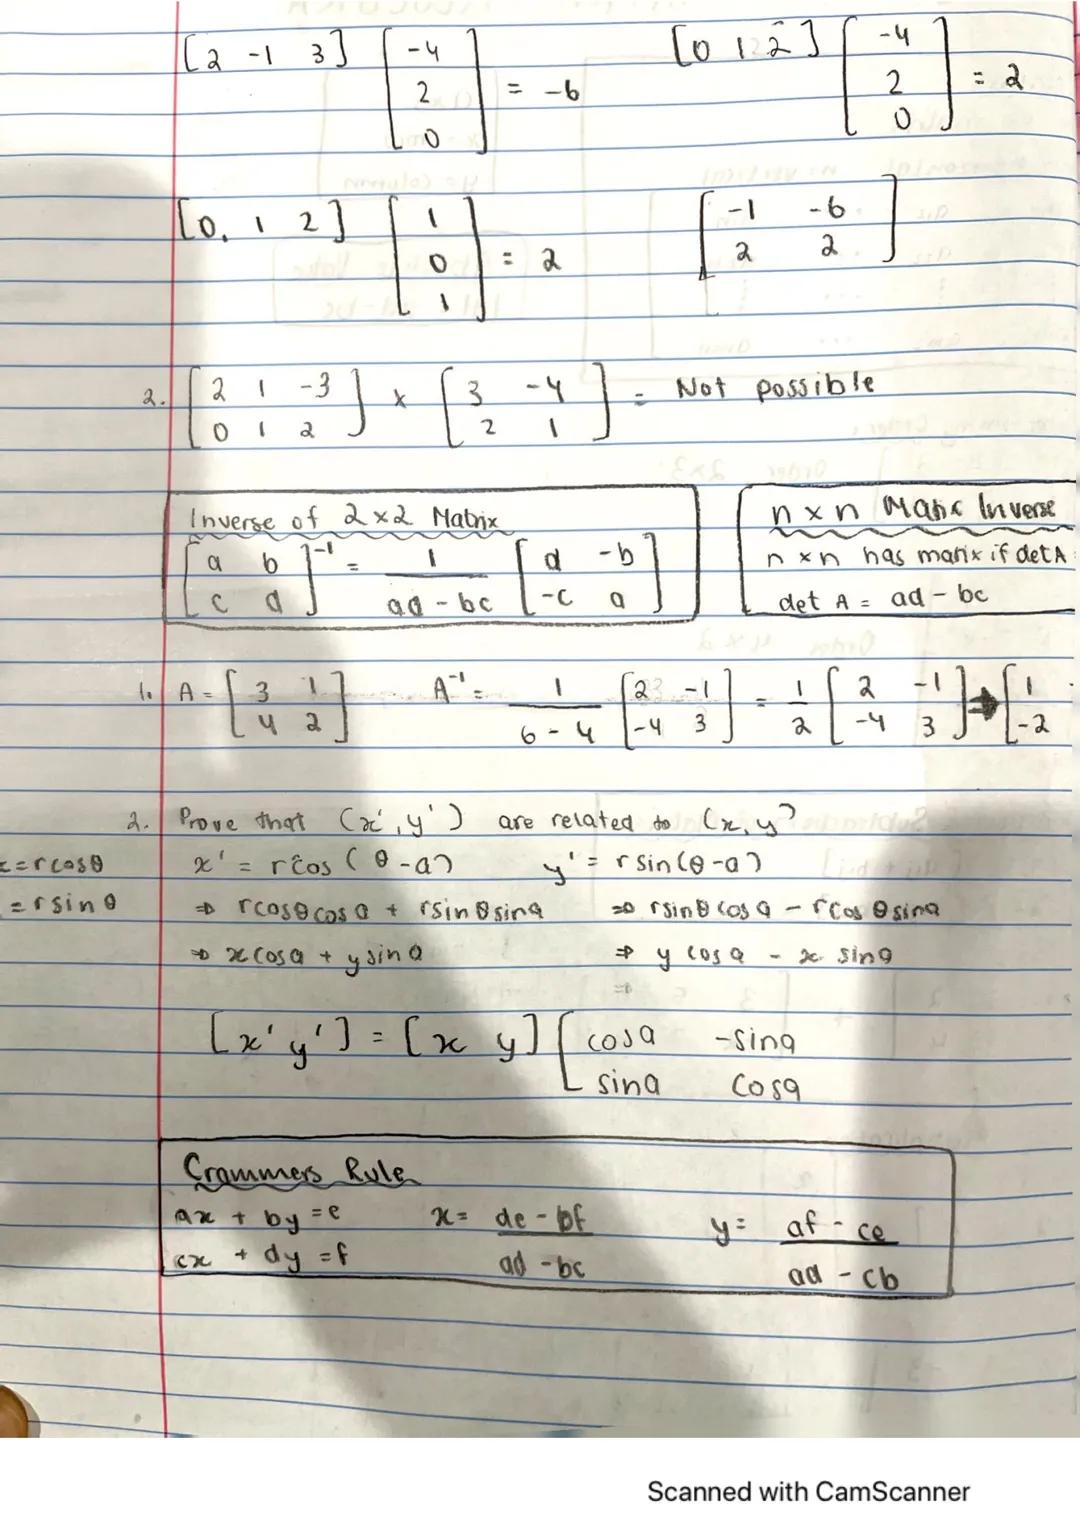 [2 -1 3] [-4 2 0] = -6 [0 1 2] [-4 2 0] = 2
[0, 1 2] [1 0 1] = 2 [-1 -6 2 2]
2. [2 1 -3 0 1 2] x [3 -4 2 1] = Not possible
Inverse of 2x2 Matrix
[a b c d]⁻¹ = 1 / ad - bc [d -b -c a]
n x n Matix Inverse
n x n has marix if det A
det A = ad - bc
1. A = [3 1 4 2] A⁻¹ = 1 / 6 - 4 [2 -1 -4 3] = 1/2 [2 -1 -4 3] → [1 -2
2. Prove that (x', y') are related to (x, y)
x = rcosθ x' = rcos(θ-a) y' = rsin(θ-a)
= rsinθ ⇒ rcosθcosa + rsinθsina ⇒ rsinθcosa - rcosθsina
⇒ xcosa + ysina ⇒ y cosa - x sina
⇒
[x' y'] = [x y] [cosa -sina sina cosa
Crammers Rule
ax + by = e x = de - bf / ad - bc y = af - ce / ad - cb
cx + dy = f
Scanned with CamScanner